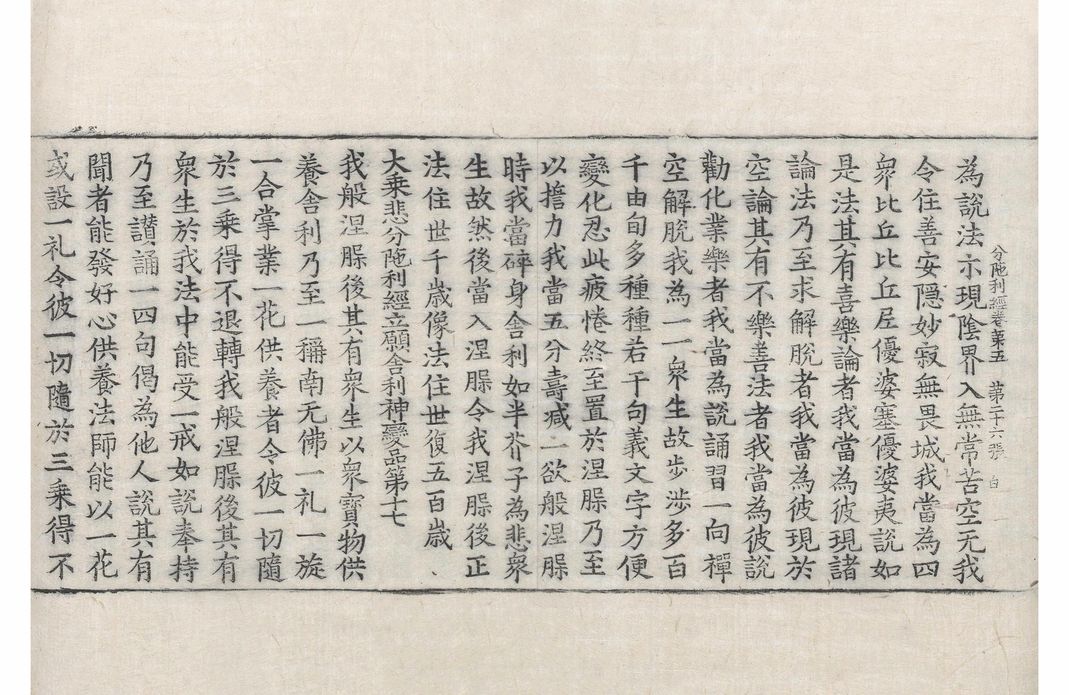 分陁利經卷第五 第二十六張 白
為說法示現陰界入無常苦空无我
令住善安隱妙寂無畏城我當為四
衆比丘比丘尼優婆塞優婆夷說如
是法其有喜樂論者我當為彼現諸
論法乃至求解脫者我當為彼現於
空論其有不樂善法者我當為彼說
勸化業樂者我當為說誦習一向禪
空解脫我為一一衆生故步涉多百
千由旬多種種若干句義文字方便
變化忍此疲惓終至置於涅槃乃至
以擔力我當五分壽减一欲般涅槃
時我當碎身舍利如半芥子為悲衆
生故然後當入涅槃令我涅槃後正
法住世千歲像法住世復五百歲
大乗悲分陁利經立願舍利神變品第十七
我般涅槃後其有衆生以衆寶物供
養舍利乃至一稱南无佛一礼一旋
一合掌業一花供養者令彼一切隨
於三乗得不退轉我般涅槃後其有
衆生於我法中能受一戒如說奉持
乃至讚誦一四句偈為他人說其有
聞者能發好心供養法師能以一花
或設一礼令彼一切隨於三乗得不